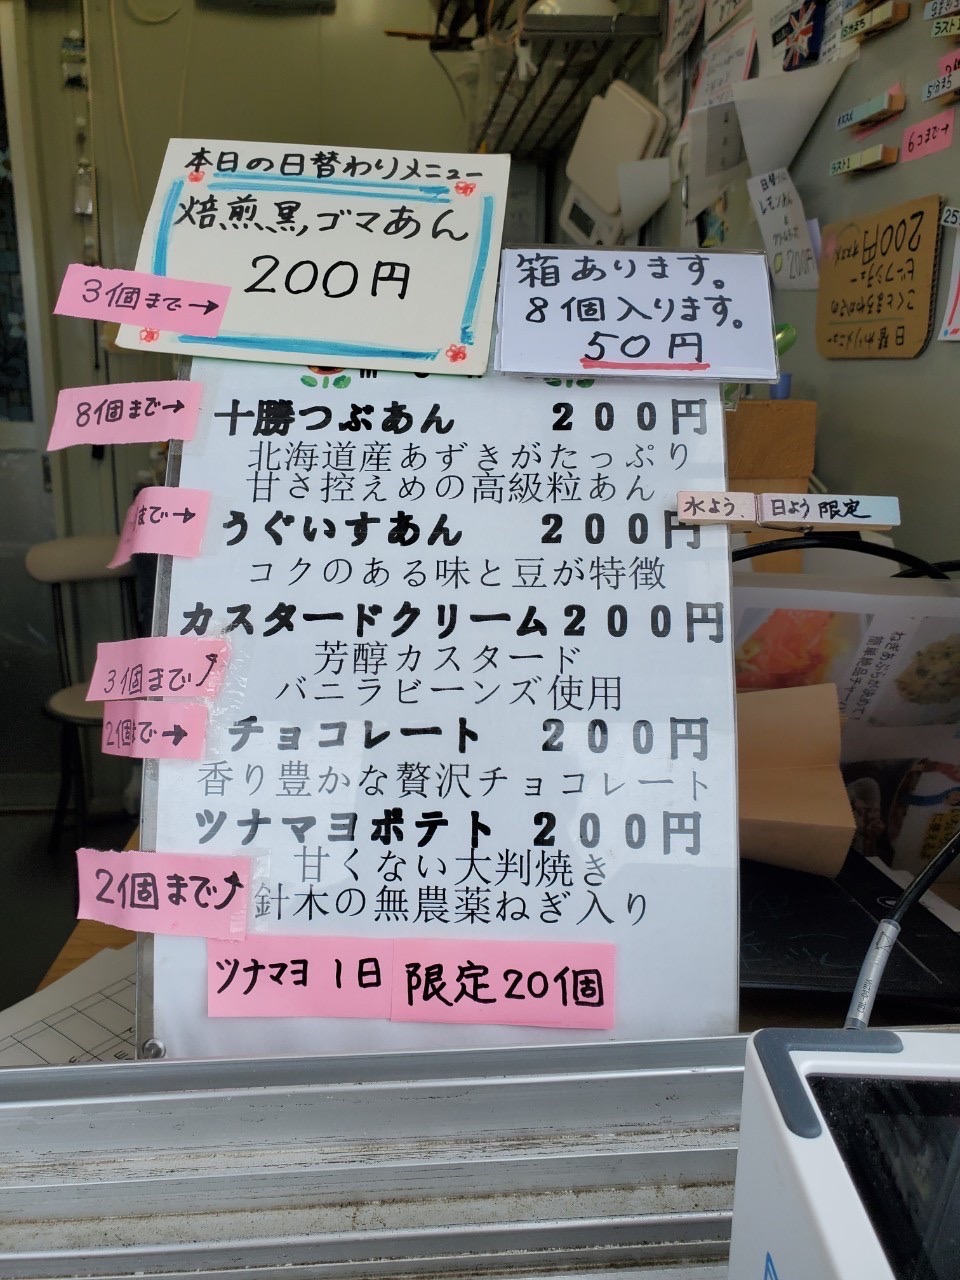 本日の日替わりメニュー
焙煎黒ゴマあん
200円
3個まで→
箱あります。
8個入ります。
50円
8個まで→
十勝つぶあん 200円
北海道産あずきがたっぷり
甘さ控えめの高級粒あん
まで→
うぐいすあん 200円
水よう、日よう限定
コクのある味と豆が特徴
カスタードクリーム200円
3個まで↑
芳醇カスタード
バニラビーンズ使用
2個まで→
チョコレート 200円
香り豊かな贅沢チョコレート
ツナマヨポテト 200円
2個まで↑
甘くない大判焼き
針木の無農薬ねぎ入り
ツナマヨ 1日 限定20個
日替り
レモンあん
200円
日替りメニュー
ビーフシチュー
200円
ラスト1